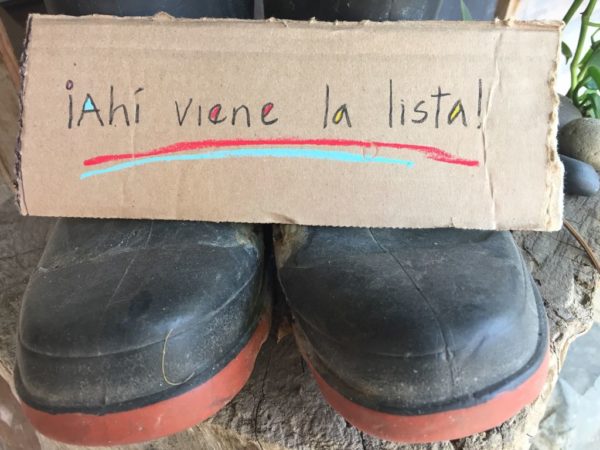 ¡Ahí viene la lista!